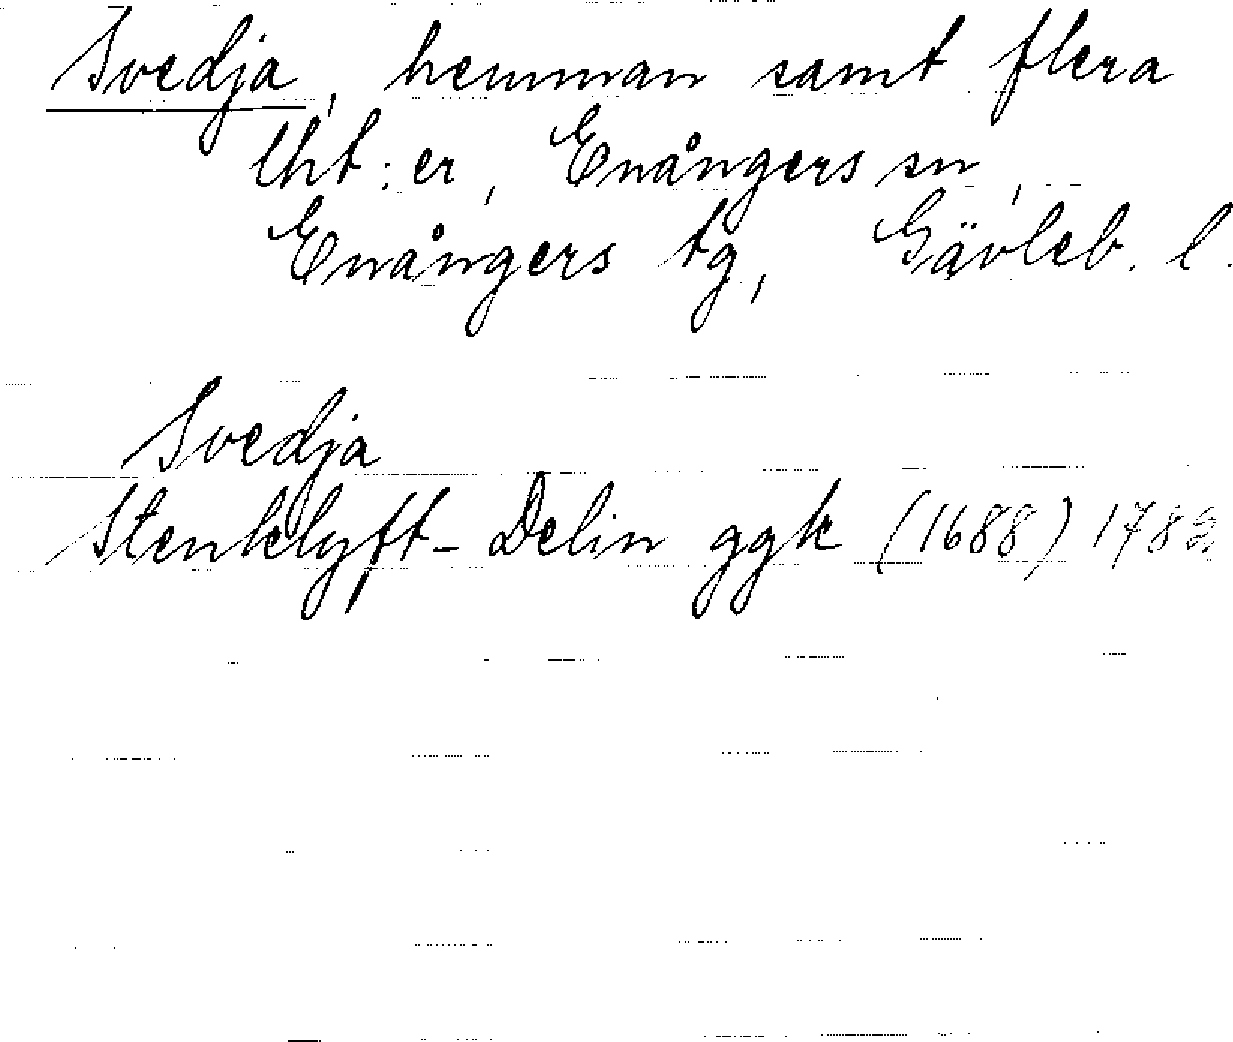 Svedja, hemman samt flera
lht:er, Enångers sn,
Enångers tg, Gävleb. l.
Svedja
Stenklyft-Delin ggk (1688) 1782